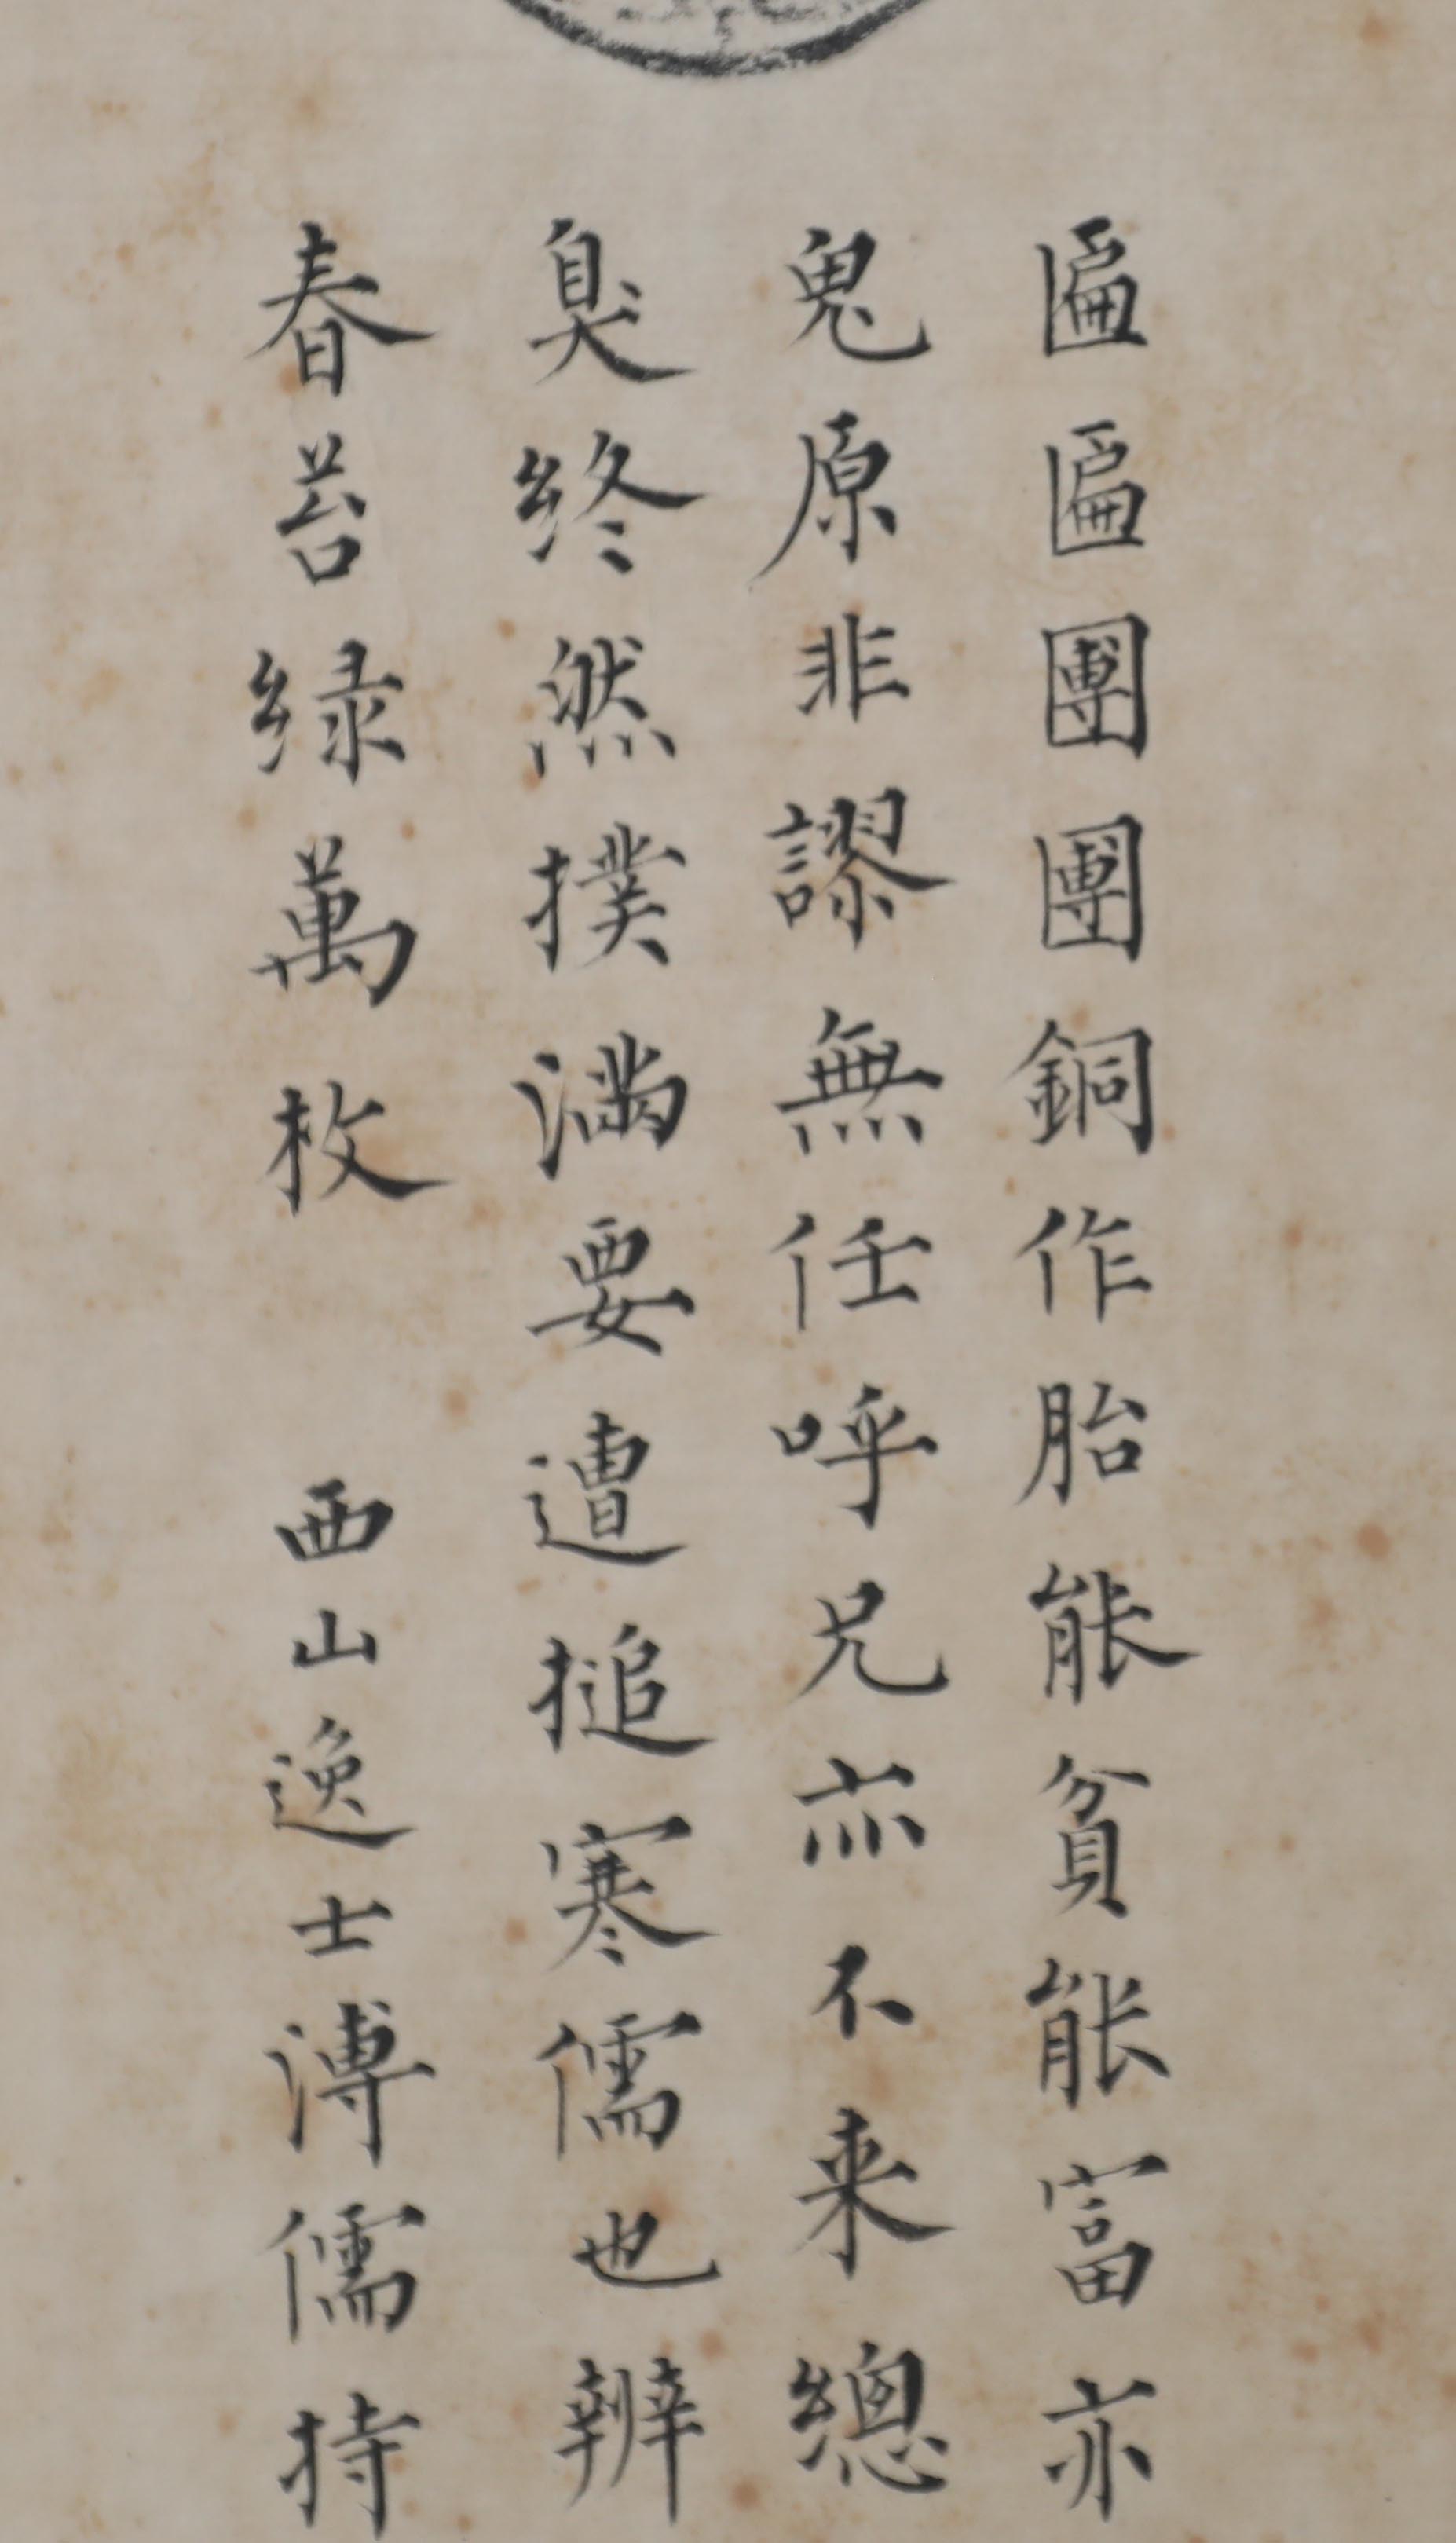 匾匾團團銅作胎能貧能富亦
鬼原非謬無任呼兄亦不来總
臭終然撲滿要遭搥寒儒也辦
春苔緑萬枚 西山逸士溥儒持